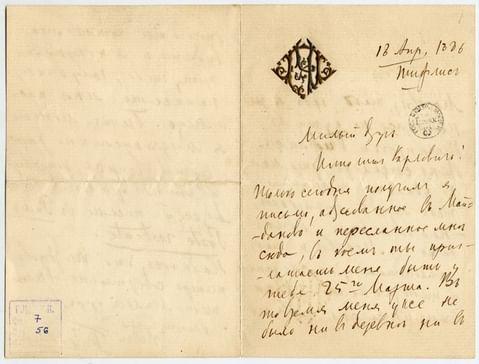 13 Апр, 1886
Тифлисъ
Милый другъ
Ипполитъ Карловичъ!
Только сегодня получилъ я
письмо, адресованное въ Май-
даново и пересланное мнѣ
сюда, въ коемъ ты приг-
лашаешь меня быть у
тебя 25го Марта. Въ
то время меня уже не
было ни въ деревнѣ ни въ
7
56